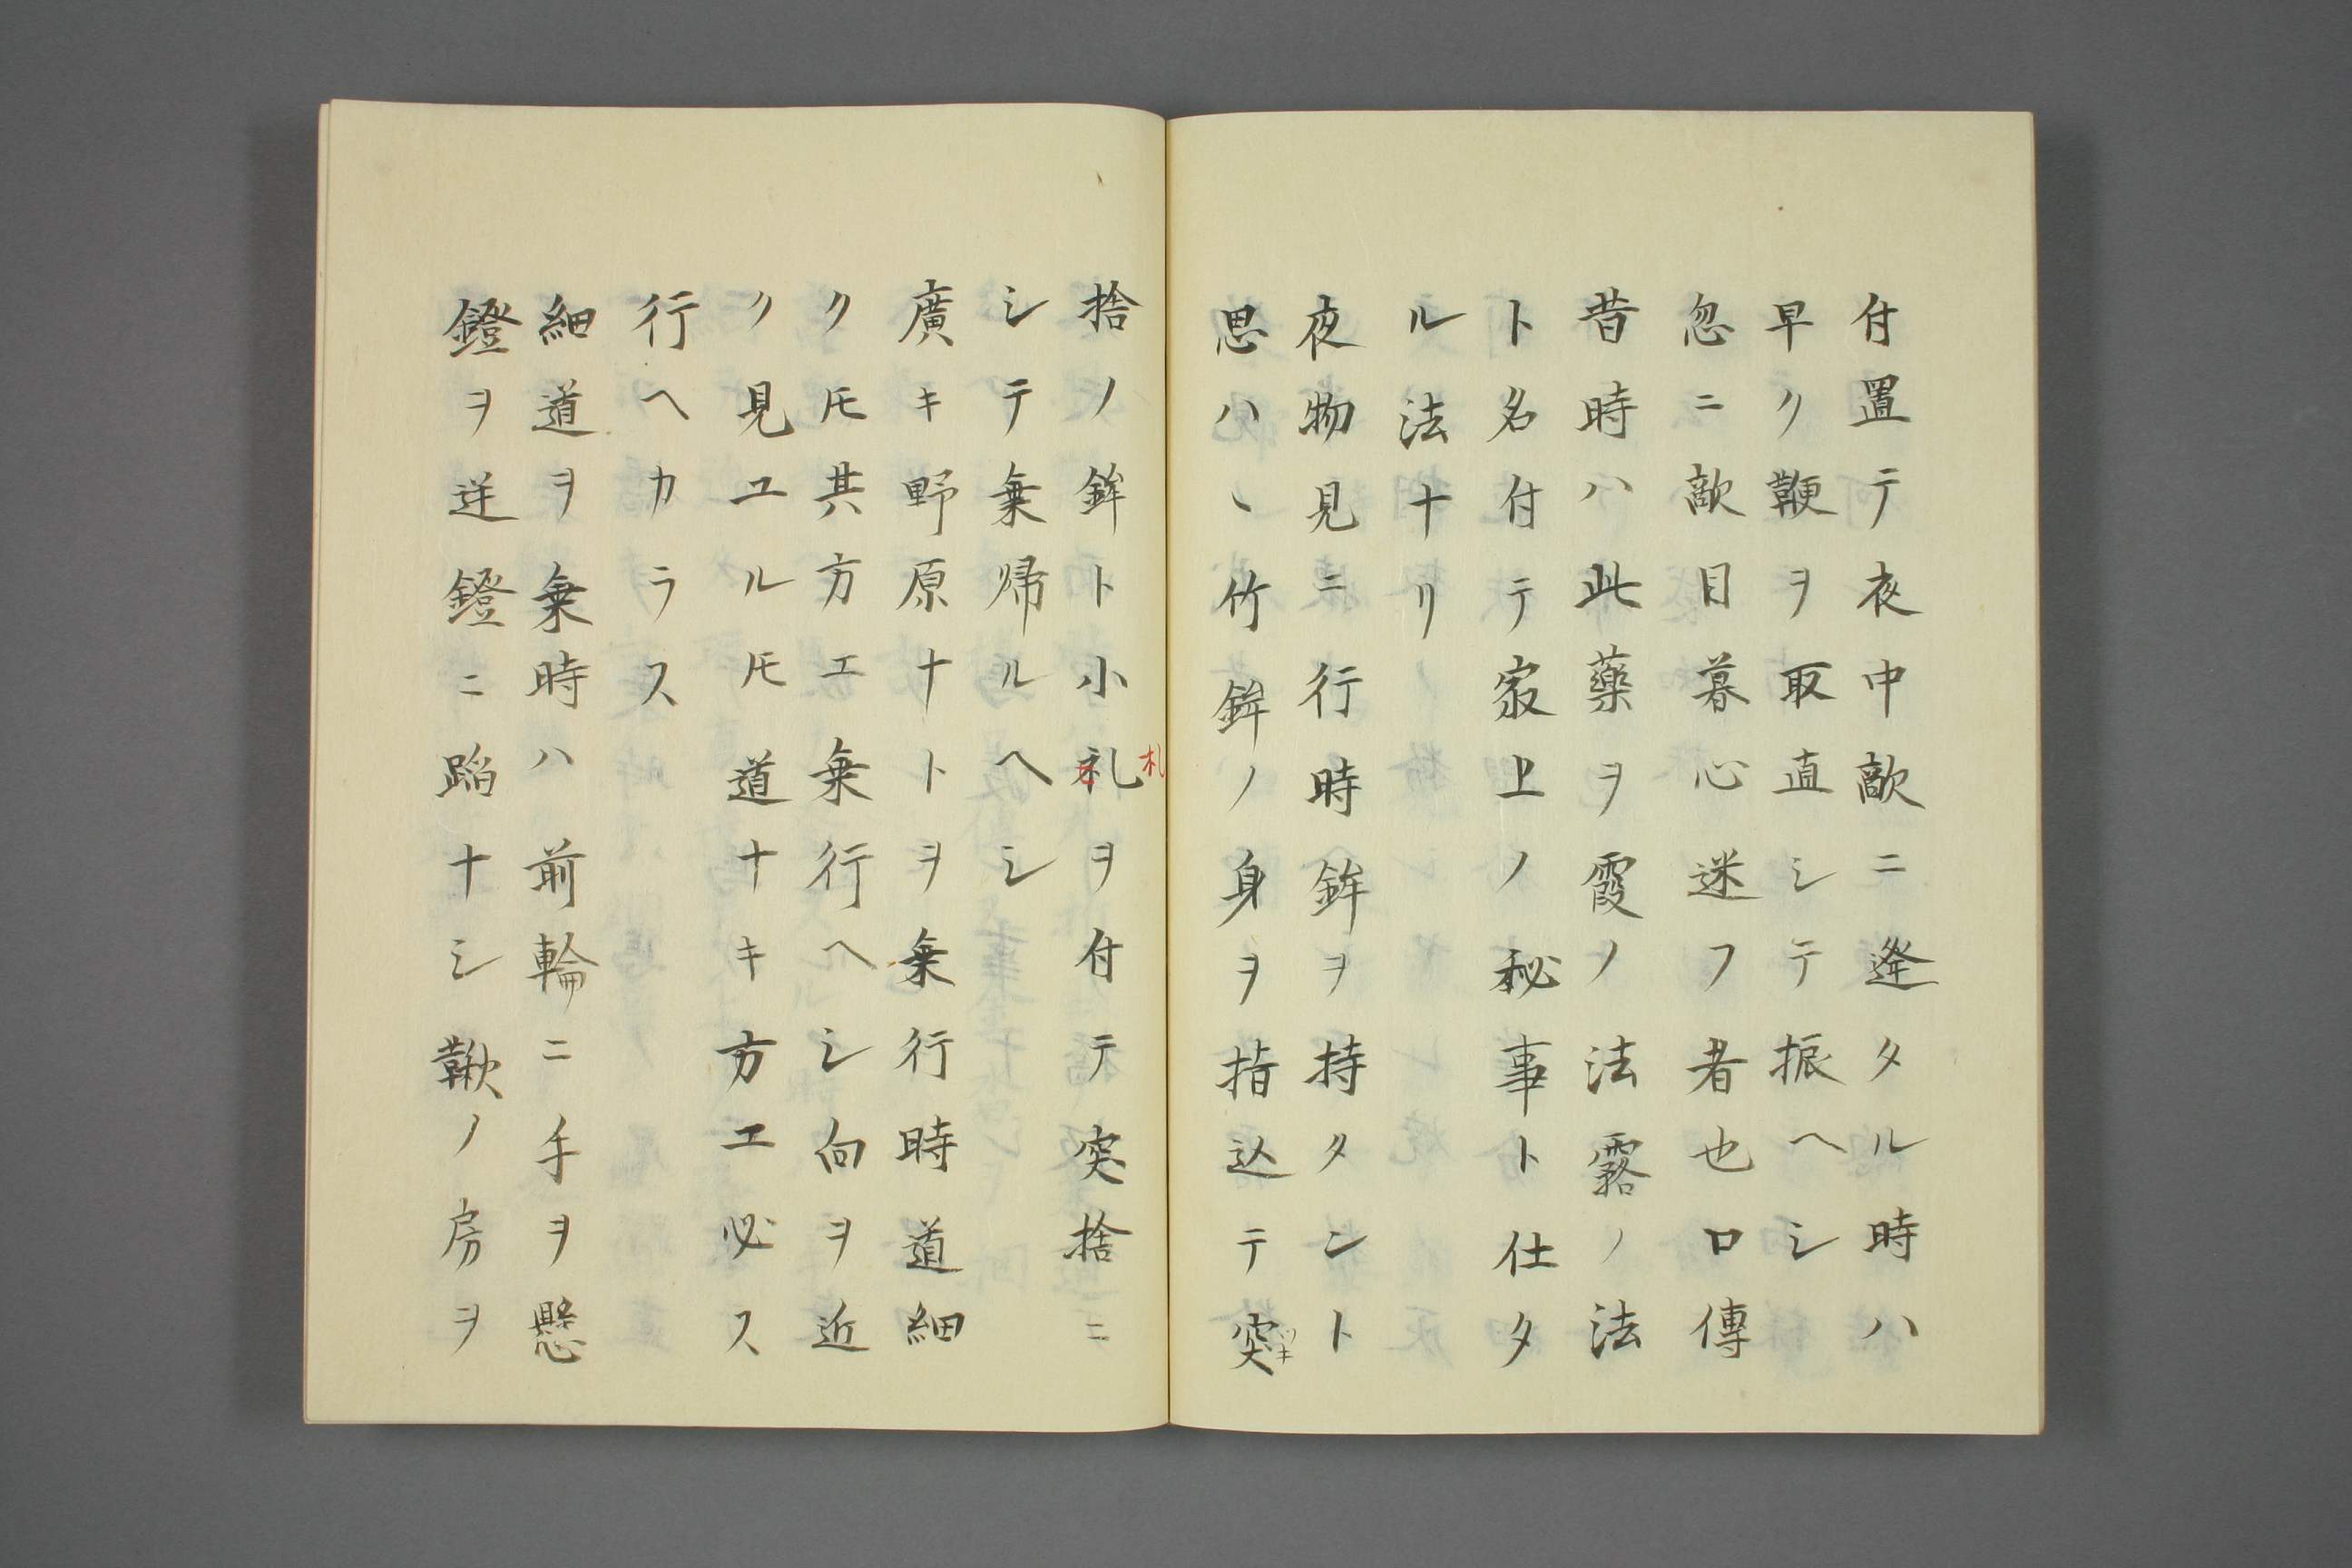 付置テ夜中敵ニ逢タル時ハ
早ク鞭ヲ取直シテ振ヘシ
忽ニ敵目暮心迷フ者也口傳
昔時ハ此藥ヲ霞ノ法露ノ法
ト名付テ家上ノ秘事ト仕タ
ル法ナリ
夜物見ニ行時鉾ヲ持タント
思ハヽ竹鉾ノ身ヲ指込テ突
ツキ
捨ノ鉾ト小礼ヲ付テ突捨ニ
札
シテ乗帰ルヘシ
廣キ野原ナトヲ乗行時道細
クモ其方エ乗行ヘシ向ヲ近
ク見ユルモ道ナキ方エ必ス
行ヘカラス
細道ヲ乗時ハ前輪ニ手ヲ懸
鐙ヲ逆鐙ニ蹈ナシ鞦ノ房ヲ